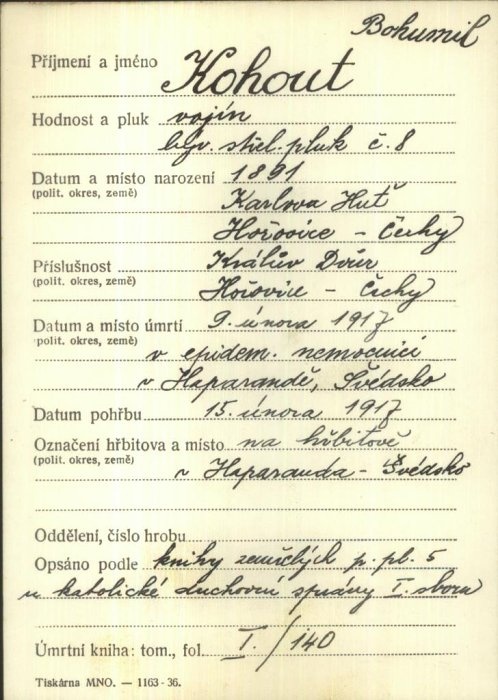 Bohumil
Příjmení a jméno Kohout
Hodnost a pluk vojín
býv. střel. pluk č. 8
Datum a místo narození 1891
(polit. okres, země) Karlova Huť
Hořovice - Čechy
Příslušnost Králův Dvůr
(polit. okres, země) Hořovice - Čechy
Datum a místo úmrtí 9. února 1917
(polit. okres, země) v epidem. nemocnici
v Haparandě, Švédsko
Datum pohřbu 15. února 1917
Označení hřbitova a místo na hřbitově
(polit. okres, země) v Haparanda - Švédsko
Oddělení, číslo hrobu
Opsáno podle knihy zemřelých p. pl. 5
u katolické duchovní správy I. sboru
Úmrtní kniha: tom., fol. I. / 140
Tiskárna MNO. — 1163-36.